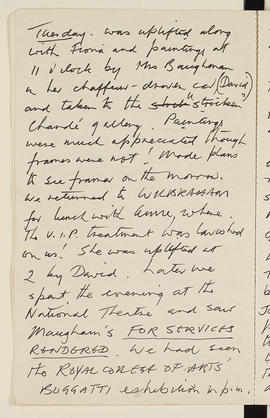 Tuesday. was uplifted along
with Fiona and paintings at
11 o'clock by Mrs Baughman
in her chauffeur-driven car (David)
and taken to the stricken
Chandé gallery. Paintings
were much appreciated though
frames were not! Made plans
to see framer on the morrow.
We returned to
for lunch with Anne, where
the V.I.P. treatment was lavished
on us! She was uplifted at
2 by David. Later we
spent the evening at the
National Theatre and saw
Maugham's FOR SERVICES
RENDERED. We had seen
the ROYAL COLEGE OF ARTS'
BUGGATTI exhibition in p.m.